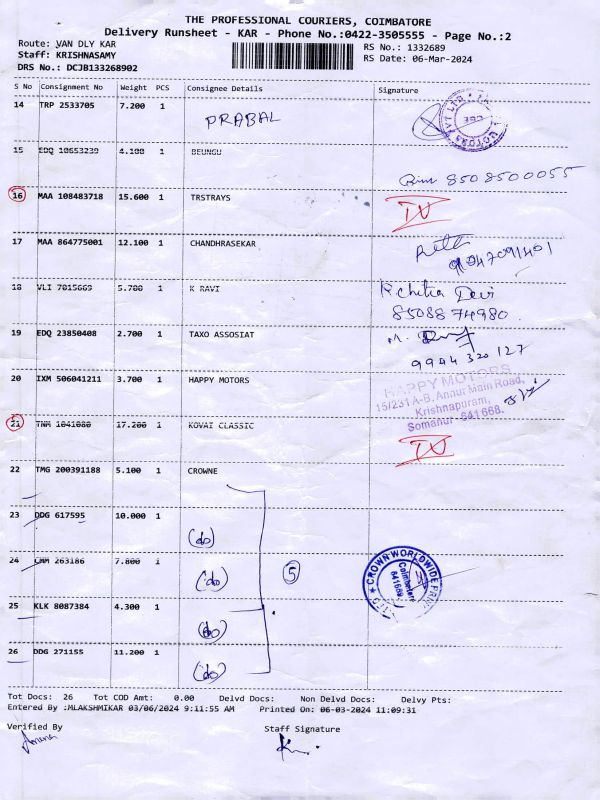 THE PROFESSIONAL COURIERS, COIMBATORE
Delivery Runsheet - KAR - Phone No.:0422-3505555 - Page No.:2
Route: VAN DLY KAR
RS No.: 1332689
Staff: KRISHNASAMY
RS Date: 06-Mar-2024
DRS No.: DCJB133268902
S No Consignment No Weight PCS Consignee Details Signature
14 TRP 2533705 7.200 1 PRABAL
15 EDQ 10653239 4.100 1
8508500055
16 MAA 108483718 15.600 1 TRSTRAYS
17 MAA 864775001 12.100 1 CHANDHRASEKAR
18 VLI 7015669 5.700 1 K RAVI Devi
8508874980
19 EDQ 23850408 2.700 1 TAXO ASSOSIAT
9944 320 127
20 IXM 506041211 3.700 1 HAPPY MOTORS
HAPPY MOTORS
15/231 A-B, Annur Main Road,
Krishnapuram,
Somanur - 641 668.
21 TNM 1041080 17.200 1 KOVAI CLASSIC
22 TMG 200391188 5.100 1 CROWNE
23 DDG 617595 10.000 1
(do)
24 263186 7.800 1
(do)
5
CROWN WORLDWIDE
Coimbatore
25 KLK 8087384 4.300 1
(do)
26 DDG 271155 11.200 1
(do)
Tot Docs: 26 Tot COD Amt: 0.00 Delvd Docs: Non Delvd Docs: Delvy Pts:
Entered By :MLAKSHMIKAR 03/06/2024 9:11:55 AM Printed On: 06-03-2024 11:09:31
Verified By Staff Signature